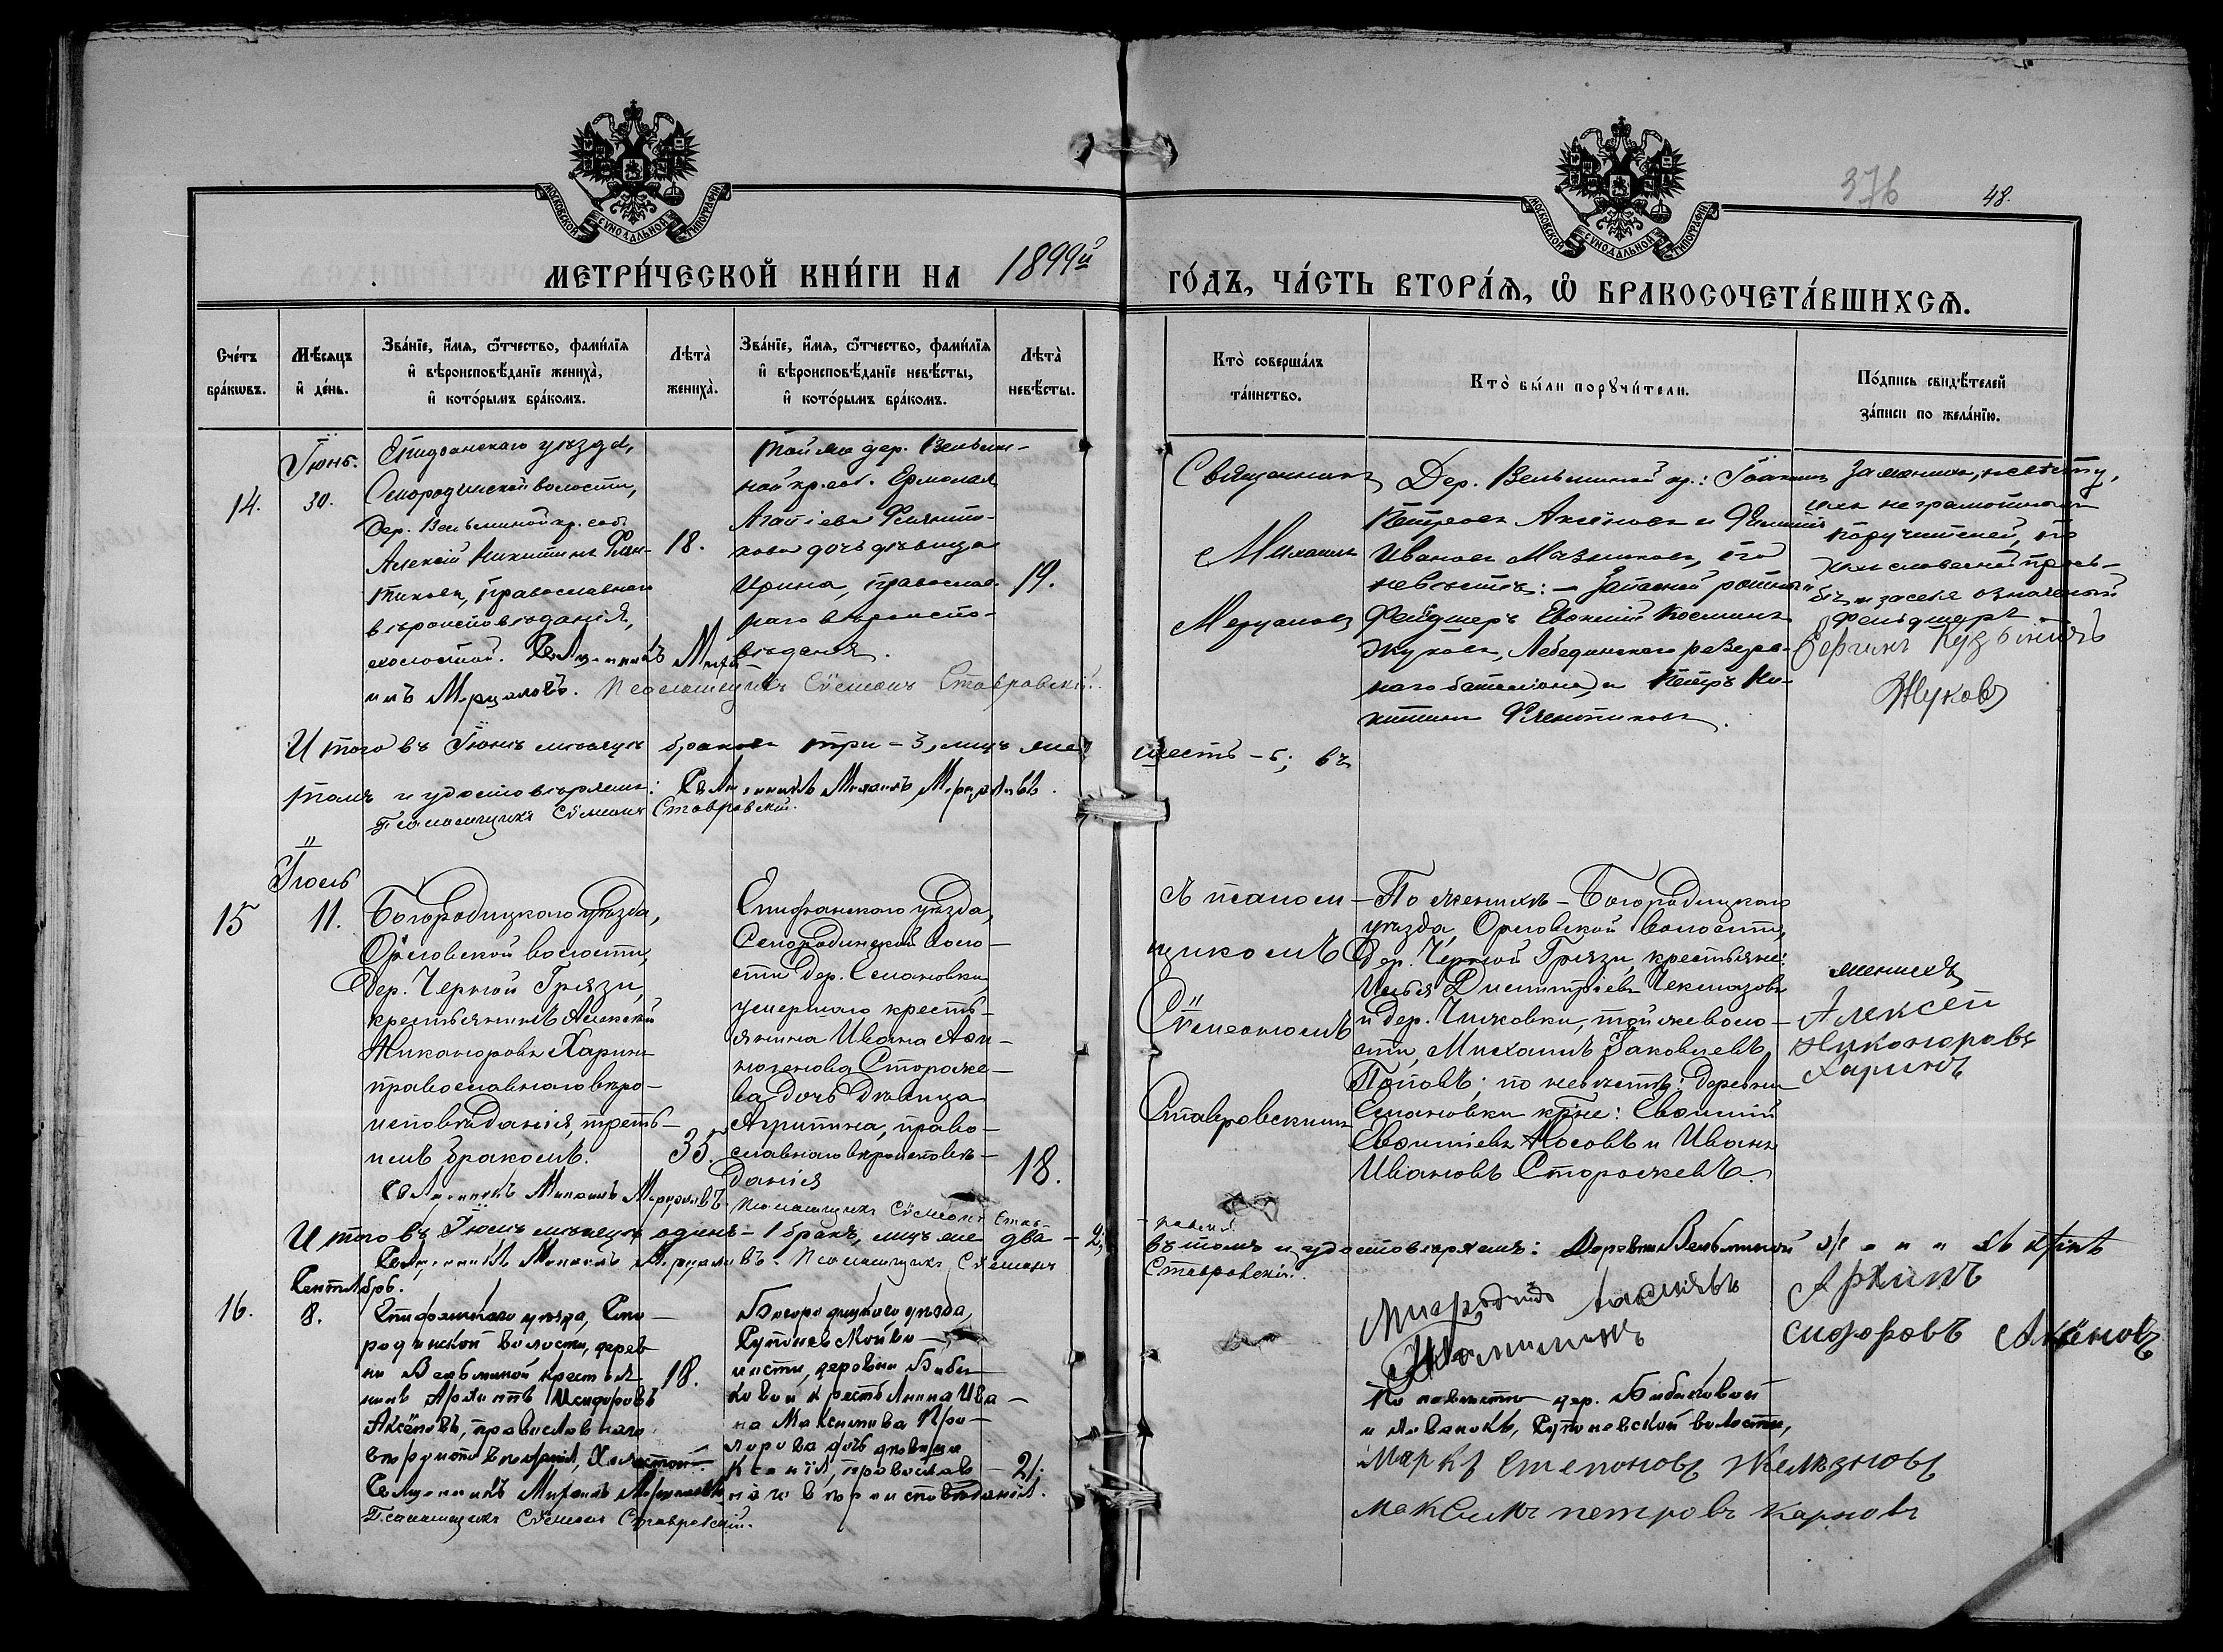 376
48.
МОСКОВСКОЙ СѴНОДАЛЬНОЙ ТИПОГРАФІИ
МОСКОВСКОЙ СѴНОДАЛЬНОЙ ТИПОГРАФІИ
МЕТРИ́ЧЕСКОЙ КНИ́ГИ НА 1899й
ГО́ДЪ, ЧА́СТЬ ВТОРА́Ѧ, Ѽ БРАКОСОЧЕТА́ВШИХСѦ.
Сче́тъ
бра́кѡвъ.
Мѣ́сяцъ
и҆ де́нь.
Зва́нїе, и҆́мѧ, ѻ҆́тчество, фами́лїѧ
и҆ вѣроисповѣ́данїе жениха̀,
и҆ кото́рымъ бра́комъ.
Лѣта̀
жениха̀.
Зва́нїе, и҆́мѧ, ѻ҆́тчество, фами́лїѧ
и҆ вѣроисповѣ́данїе невѣ́сты,
и҆ кото́рымъ бра́комъ.
Лѣта̀
невѣ́сты.
Кто̀ соверша́лъ
та́инство.
Кто̀ бы́ли порꙋчи́тели.
По́дпись свидѣ́телей
за́писи по жела́нїю.
14.
Іюнь.
30.
Епифанскаго уѣзда,
Смородинской волости,
Дер. Вельминой кр. соб.
Алексій Никитинъ Флен-
тиковъ, православнаго
вѣроисповѣданія,
холостой. Священникъ Миха-
илъ Мерцаловъ. Псаломщикъ Сѵмеонъ Ставровскій.
18.
той же дер. Вельми-
ной кр. соб. Ермолая
Агапіева
дочь дѣвица
Ирина, православ-
наго вѣроиспо-
вѣданія.
19.
Священникъ
Михаилъ
Мерцаловъ
Дер. Вельминой кр.: Іоаннъ
Петровъ Аксёновъ и Филиппъ
Ивановъ по
невѣстѣ: – Запасной ротный
фельдшеръ Евфимій Косминъ
Жуковъ, Лебединскаго резерв-
наго баталіона, и Петръ Ни-
китинъ Флентиковъ.
За жениха, невѣсту,
неграмотныхъ
поручителей, по
ихъ словесной прось-
бѣ, и за себя означенный
фельдшеръ
Жуковъ
Итого въ Іюнѣ мѣсяцѣ браковъ три – 3, лицъ же
шесть – 6; въ
томъ и удостовѣряемъ: Священникъ Михаилъ Мерцаловъ.
Псаломщикъ Сѵмеонъ Ставровскій.
Іюль
15
11.
Богородицкаго уѣзда,
Орловской волости,
дер. Черной Грязи,
крестьянинъ Алексѣй
Никаноровъ Харинъ
православнаго вѣро-
исповѣданія, треть-
имъ бракомъ.
Священникъ Михаилъ Мерцаловъ
35.
Епифанскаго уѣзда,
Смородинской воло-
сти дер. Елановки,
умершаго кресть-
янина Ивана Афи-
ногенова Стороже-
ва дочь дѣвица
Агрипина, право-
славнаго вѣроисповѣ-
данія
Псаломщикъ Сѵмеонъ Став-
ровскій.
18.
Съ псалом-
щикомъ
Сѵмеономъ
Ставровскимъ
По женихѣ – Богородицкаго
уѣзда, Орловской волости,
дер. Черной Грязи, крестьяне:
Илья Димитріевъ Чекмазовъ
и дер. той же воло-
сти, Михаилъ Яковлевъ
Поповъ; по невѣстѣ: деревни
Елановки кр-не: Евфимій
Евфиміевъ Носовъ и Иванъ
Ивановъ Сторожевъ.
женихъ
Алексей
Никоноровъ
Харинъ
Итого въ Іюлѣ мѣсяцѣ одинъ – 1 бракъ, лицъ же два – 2;
въ томъ и удостовѣряемъ: Деревни Вельминой
Священникъ Михаилъ Мерцаловъ. Псаломщикъ Сѵмеонъ
Ставровскій.
Сентябрь.
16.
8.
Епифанскаго уѣзда, Смо-
родинской волости, дерев-
ни Вельминой крестья-
нинъ Архиппъ Исидоровъ
Аксёновъ, православнаго
вѣроисповѣданія, холостой.
Священникъ Михаилъ Мерцаловъ
Псаломщикъ Сѵмеонъ Ставровскій.
18.
Богородицкаго уѣзда,
во-
лости, деревни Биби-
ковой крестьянина Ива-
на Максимова
дочь дѣвица
Ксенія, православ-
наго вѣроисповѣданія.
21.
Архипъ
сидоровъ Аксёновъ
По невѣстѣ дер. Бибиковой
волости,
Маркъ Степоновъ Желѣзновъ
максимъ петровъ карповъ